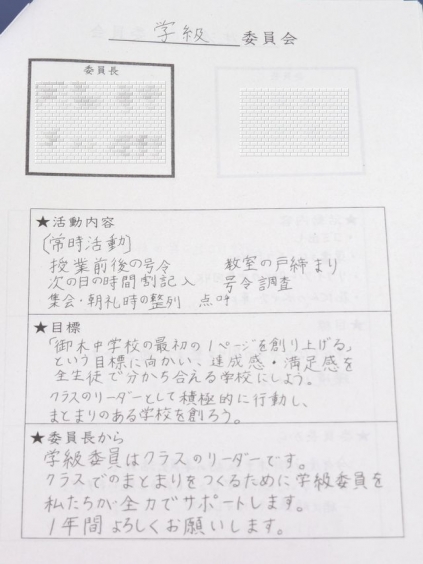 学級 委員会
委員長
★活動内容
[常時活動]
授業前後の号令 教室の戸締まり
次の日の時間割記入 号令調査
集会・朝礼時の整列 点呼
★目標
「御木中学校の最初の1ページを創り上げる」
という目標に向かい、達成感・満足感を
全生徒で分かち合える学校にしよう。
クラスのリーダーとして積極的に行動し、
まとまりのある学校を創ろう。
★委員長から
学級委員はクラスのリーダーです。
クラスでのまとまりをつくるために学級委員を
私たちが全力でサポートします。
1年間よろしくお願いします。